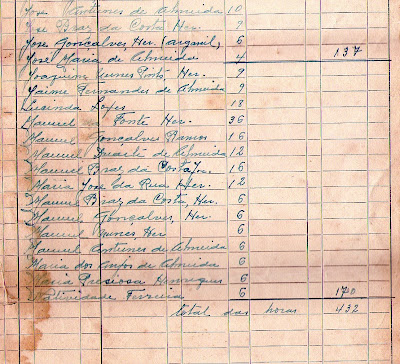 José Antunes de Almeida 10
José Braz da Costa Her. 9
José Gonçalves Her. (Arganil) 6
José Maria de Almeida 4 137
Joaquim Nunes Pinto, Her. 9
Jaime Fernandes de Almeida 9
Lucinda Lopes 18
Manuel Fonte Her. 36
Manuel Goncalves Ramos 16
Manuel Duarte de Almeida 12
Manuel Braz da Costa 16
Maria José da Rua Her. 12
Manuel Braz da Costa, Her. 6
Manuel Gonçalves, Her. 6
Manuel Nunes Her 6
Manuel Antunes de Almeida 6
Maria dos Anjos de Almeida 6
Maria Presiosa Henriques 6
Natividade Ferreira 6 170
total das horas 432